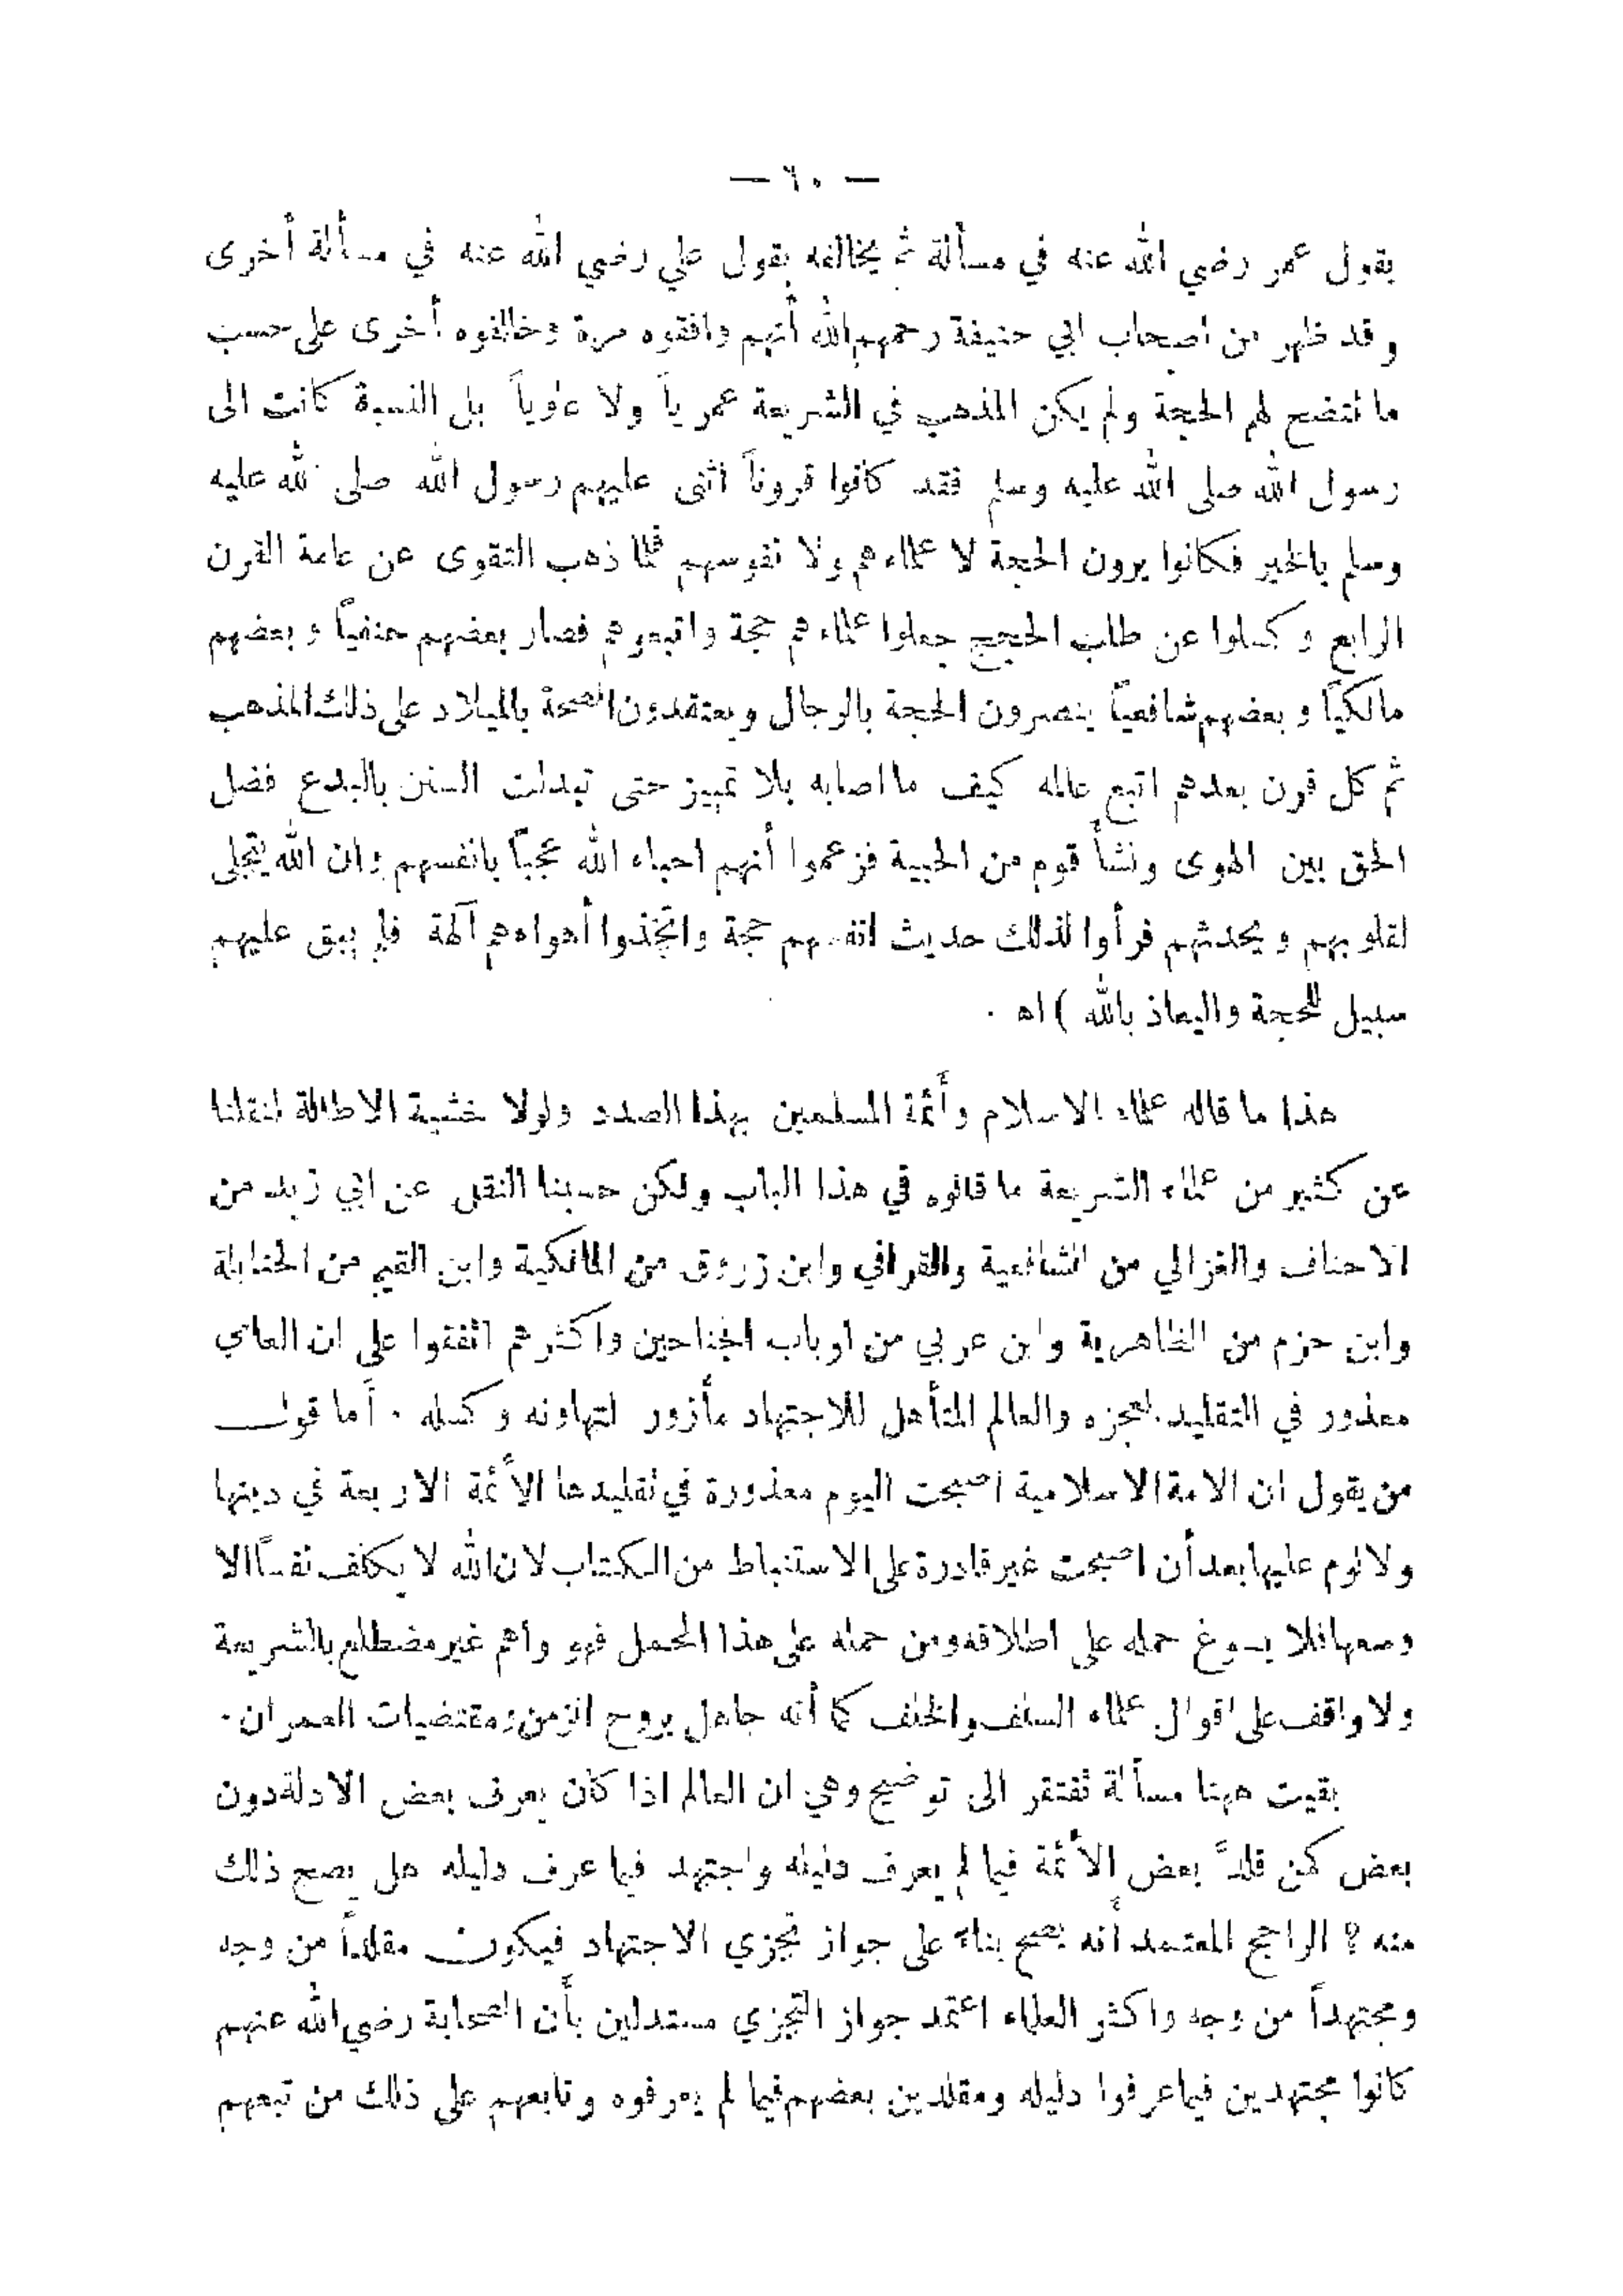 — ٦٠ —
بقول عمر رضي الله عنه في مسألة ثم يخالفه بقول علي رضي الله عنه في مسألة أخرى
وقد ظهر من اصحاب ابي حنيفة رحمهم الله أنهم وافقوه مرة وخالفوه أخرى على حسب
ما تتضح لهم الحجة ولم يكن المذهب في الشريعة عمرياً ولا علوياً بل النسبة كانت الى
رسول الله صلى الله عليه وسلم فقد كانوا قروناً اثنى عليهم رسول الله صلى الله عليه
وسلم بالخير فكانوا يرون الحجة لا علماءهم ولا نفوسهم فلما ذهب التقوى عن عامة القرن
الرابع وكسلوا عن طلب الحجج جعلوا علماءهم حجة واتبعوهم فصار بعضهم حنفياً وبعضهم
مالكياً وبعضهم شافعياً ينصرون الحجة بالرجال ويعتقدون الصحة بالميلاد على ذلك المذهب
ثم كل قرن بعدهم اتبع عالمه كيف ما اصابه بلا تمييز حتى تبدلت السنن بالبدع فضل
الحق بين الهوى ونشأ قوم من الحبية فزعموا أنهم احباء الله عجباً بانفسهم وان الله يتجلى
لقلوبهم ويحدثهم فرأوا لذلك حديث انفسهم حجة واتخذوا أهواءهم آلهة فلم يبق عليهم
سبيل للحجة والیعاذ بالله ) اه .
هذا ما قاله علماء الاسلام وأئمة المسلمين بهذا الصدد ولولا خشية الاطالة لنقلنا
عن كثير من علماء الشريعة ما قالوه في هذا الباب ولكن حسبنا النقل عن ابي زيد من
الاحناف والغزالي من الشافعية والقرافي وابن زروق من المالكية وابن القيم من الحنابلة
وابن حزم من الظاهرية وابن عربي من ارباب الجناحين واكثرهم اتفقوا على ان العامي
معذور في التقليد لعجزه والعالم المتأهل للاجتهاد مأزور لتهاونه وكسله . أما قول
من يقول ان الامة الاسلامية اصبحت اليوم معذورة في تقليدها الأئمة الاربعة في دينها
ولا لوم عليها بعد أن اصبحت غير قادرة على الاستنباط من الكتاب لان الله لا يكلف نفساً الا
وسعها فلا يسوغ حمله على اطلاقه ومن حمله على هذا المحمل فهو واهم غير مضطلع بالشريعة
ولا واقف على اقوال علماء السلف والخلف كما أنه جاهل بروح الزمن ومقتضيات العمران .
بقيت ههنا مسألة تفتقر الى توضيح وهي ان العالم اذا كان يعرف بعض الادلة دون
بعض كمن قلدَّ بعض الأئمة فيما لم يعرف دليله واجتهد فيما عرف دليله هل يصح ذلك
منه ؟ الراجح المعتمد أنه يصح بناء على جواز تجزي الاجتهاد فيكون مقلداً من وجه
ومجتهداً من وجه واكثر العلماء اعتمد جواز التجزي مستدلين بأن الصحابة رضي الله عنهم
كانوا مجتهدين فيما عرفوا دليله ومقلدين بعضهم فيما لم يعرفوه وتابعهم على ذلك من تبعهم